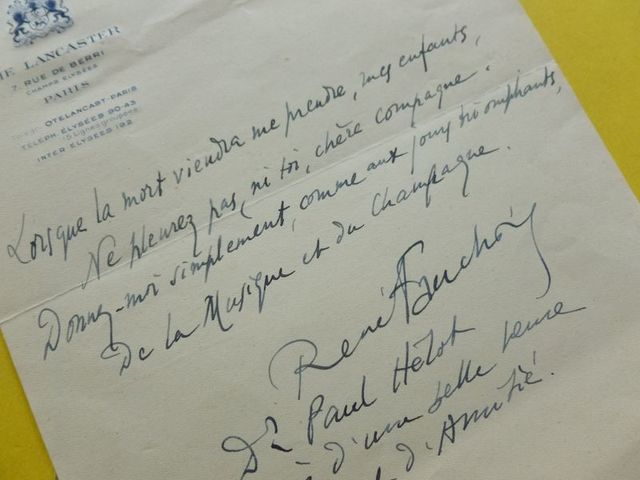 IE LANCASTER
7, RUE DE BERRI
CHAMPS ELYSÉES
PARIS
OTELANCAST-PARIS
TELEPH. ELYSÉES 90-43
INTER ELYSÉES 192
Lorsque la mort viendra me prendre, mes enfants,
Ne pleurez pas, ni toi, chère compagne.
Donnez-moi simplement, comme aux jours triomphants,
De la Musique et du Champagne.
René Fauchois
Dr Paul Hélot
d'une belle
d'Amitié.